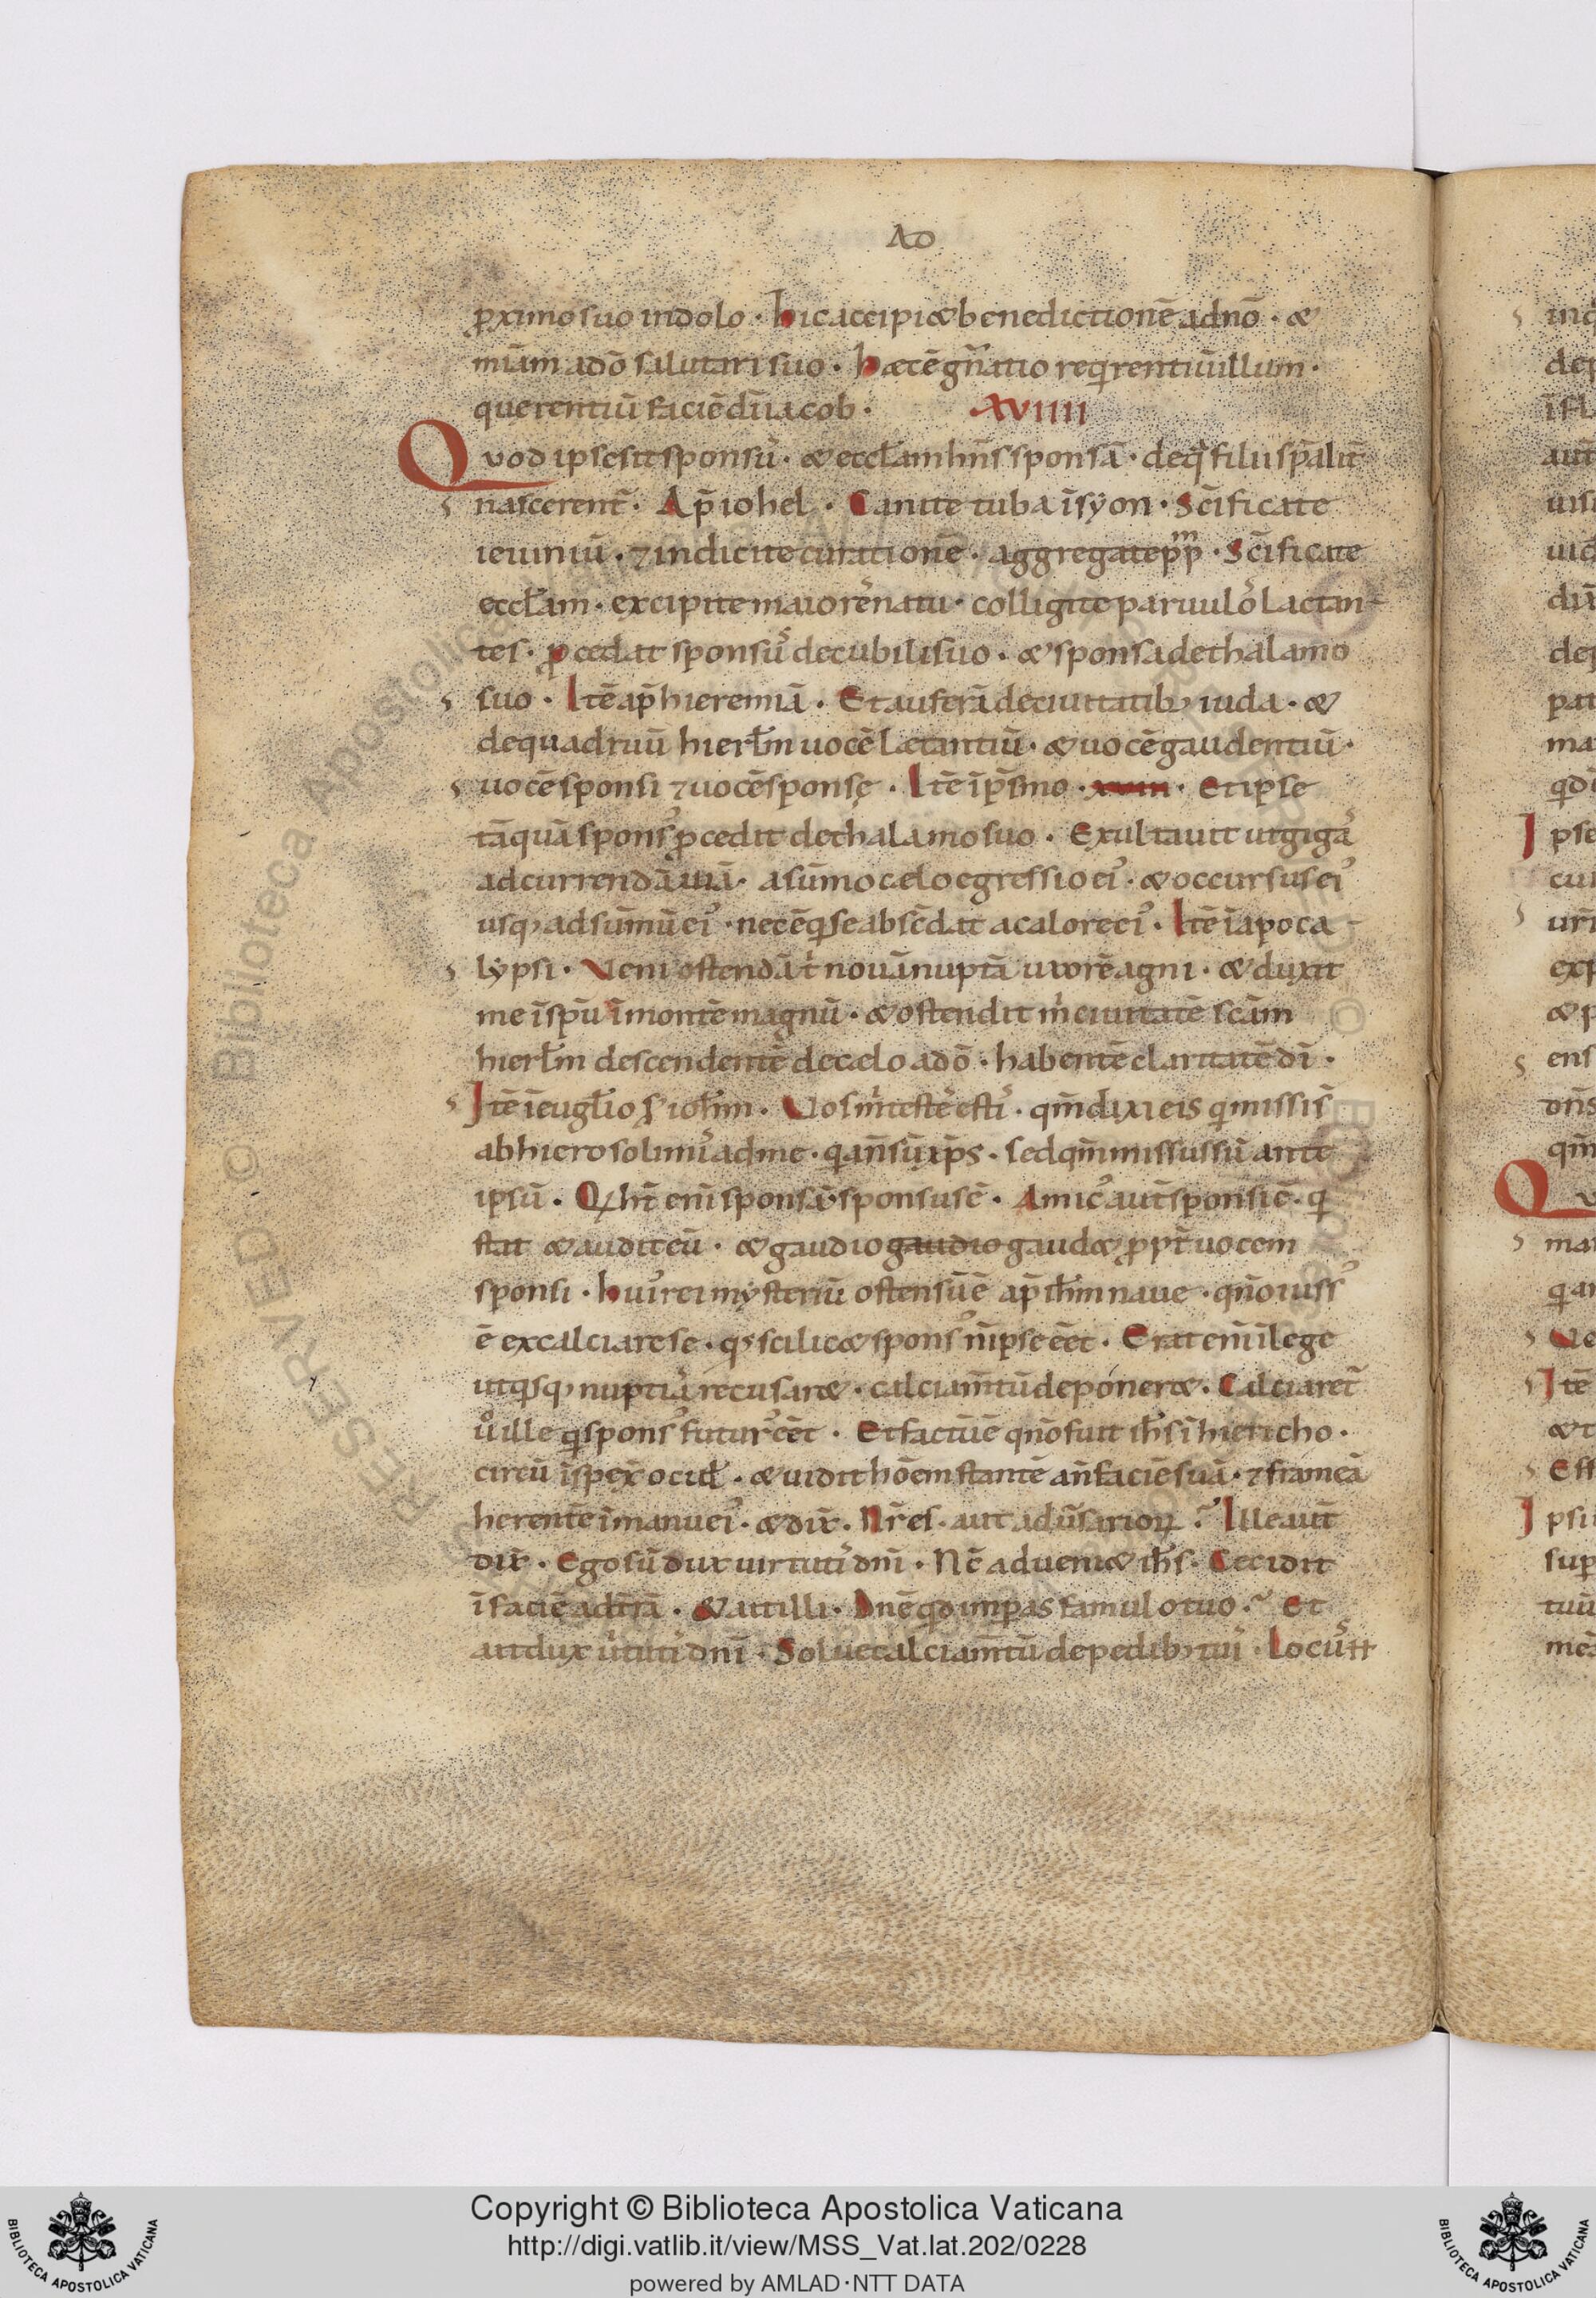 AD
ꝓximo suo in dolo · hic accipi& benedictionē a dnō · &
miām a dō salutari suo · hec ē gn̄atio reqͥrentiū illum ·
querentiū faciē dī iacob · XVIIII
Quod ipse sit sponsus · & eccl̄am hn̄s sponsā · de q̄ filii sp̄alit̄
nascerent̄ · Ap̄ iohel · Canite tuba ī syon · Sc̄ificate
ieiuniū · ⁊ indicite curationē · aggregate pp̄m · Sc̄ificate
eccl̄am · excipite maiores natu · colligite paruulos lactan-
tes · ꝓcedat sponsus de cubili suo · & sponsa de thalamo
suo · Itē ap̄ hieremiā · Et auferā de ciuitatibꝫ iuda · &
de quadruiū hierl̄m uocē letantiū · & uocē gaudentiū ·
uocē sponsi ⁊ uocē sponsę · Itē ī ps̄mo · xviii · Et ipse
tāquā sponsꝰ ꝓcedit de thalamo suo · Exultauit ut gigas
ad currendā uiā · a sūmo celo egressio eiꝰ · & occursus eiꝰ
usqꝫ ad sūmū eiꝰ · nec ē qͥ se abscōdat a calore eiꝰ · Itē ī apoca-
lypsi · Veni ostendā t̄ nouā nuptā uxorē agni · & duxit
me ī sp̄u ī montē magnū · & ostendit m̄ ciuitatē sc̄am
hierl̄m descendentē de celo a dō · habentē claritatē dī ·
Itē ī eugl̄io s̄ ioh̄m · Vos m̄ testes estis · qm̄ dixi eis qͥ missi s̄
ab hierosolimis ad me · qͥa n̄ sū xp̄s · sed qm̄ missus sū ante
ipsū · Qͥ ht̄ eni sponsā sponsus ē · Amicꝰ aut̄ sponsi ē · qͥ
stat & audit eū · & gaudio gaudio gaud& ꝓpt̄ uocem
sponsi · huiꝰ rei mysteriū ostensū ē ap̄ ih̄m naue · qn̄o iussꝰ
ē excalciare se · qꝫ scilic& sponsꝰ n̄ ipse eēt · Erat eni ī lege
ut qͥsqꝫ nuptias recusar& · calciam̄tū deponer& · Calciaret̄
ůille qͥ sponsꝰ futurꝰ eēt · Et factū ē qn̄o fuit ih̄s ī hiericho ·
circū īspex̄ oculis · & uidit hōem stantē an̄ faciē suā · ⁊ frameā
herentē ī manu eiꝰ · & dix̄ · Nr̄ es · aut adūsarioꝝ ? Ille aut̄
dix̄ · Ego sū dux uirtutis dnī · Nc̄ adueni & ih̄s · Cecidit
ī faciē ad tr̄ā · & ait illi · Dn̄e qͥd imperas famulo tuo ? Et
ait dux uirtutis dnī · Solue calciam̄tū de pedibꝫ tuis · Locus
Copyright © Biblioteca Apostolica Vaticana
http://digi.vatlib.it/view/MSS_Vat.lat.202/0228
powered by AMLAD·NTT DATA